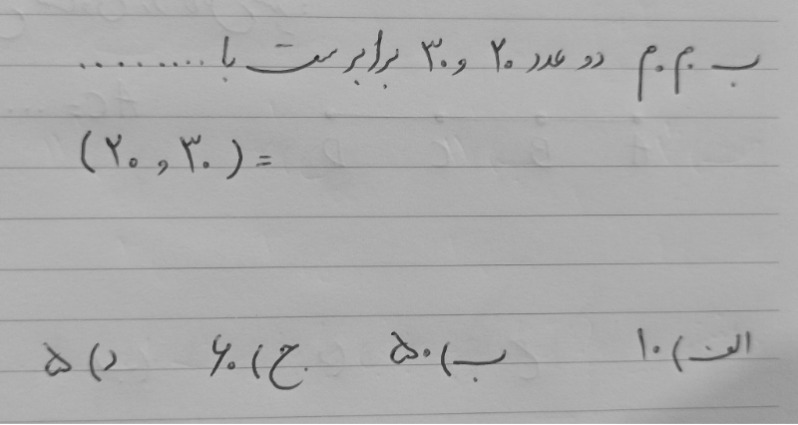 ب.م.م دو عدد ۲۰ و ۳۰ برابر ست با .........
(۲۰ , ۳۰) =
الف) ۱۰ ب) ۵۰ ج) ۶۰ د) ۵